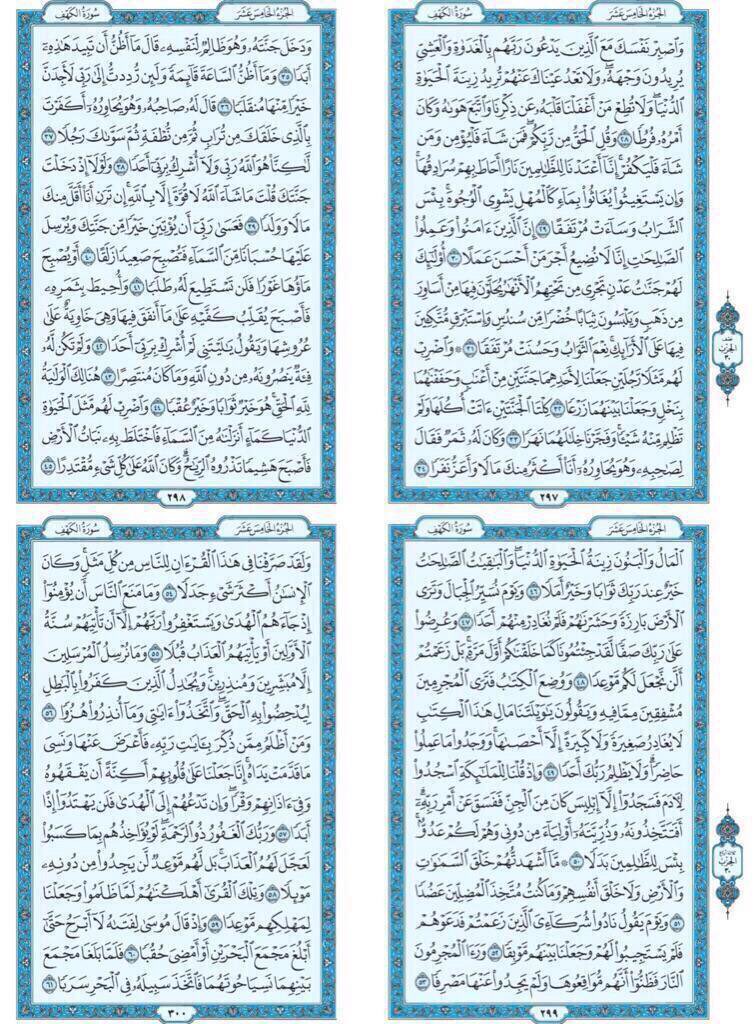 الجزء الخامس عشر
سورة الكهف
وَاصْبِرْ نَفْسَكَ مَعَ الَّذِينَ يَدْعُونَ رَبَّهُم بِالْغَدَوٰةِ وَالْعَشِيِّ
يُرِيدُونَ وَجْهَهُۥ وَلَا تَعْدُ عَيْنَاكَ عَنْهُمْ تُرِيدُ زِينَةَ الْحَيَوٰةِ
الدُّنْيَا وَلَا تُطِعْ مَنْ أَغْفَلْنَا قَلْبَهُۥ عَن ذِكْرِنَا وَاتَّبَعَ هَوَىٰهُ وَكَانَ
أَمْرُهُۥ فُرُطًا ٢٨ وَقُلِ الْحَقُّ مِن رَّبِّكُمْ فَمَن شَآءَ فَلْيُؤْمِن وَمَن
شَآءَ فَلْيَكْفُرْ إِنَّآ أَعْتَدْنَا لِلظَّٰلِمِينَ نَارًا أَحَاطَ بِهِمْ سُرَادِقُهَا
وَإِن يَسْتَغِيثُوا۟ يُغَاثُوا۟ بِمَآءٍ كَالْمُهْلِ يَشْوِي الْوُجُوهَ بِئْسَ
الشَّرَابُ وَسَآءَتْ مُرْتَفَقًا ٢٩ إِنَّ الَّذِينَ ءَامَنُوا۟ وَعَمِلُوا۟
الصَّٰلِحَٰتِ إِنَّا لَا نُضِيعُ أَجْرَ مَنْ أَحْسَنَ عَمَلًا ٣٠ أُو۟لَٰٓئِكَ
لَهُمْ جَنَّٰتُ عَدْنٍ تَجْرِي مِن تَحْتِهِمُ الْأَنْهَٰرُ يُحَلَّوْنَ فِيهَا مِنْ أَسَاوِرَ
مِن ذَهَبٍ وَيَلْبَسُونَ ثِيَابًا خُضْرًا مِّن سُندُسٍ وَإِسْتَبْرَقٍ مُّتَّكِـِٔينَ
فِيهَا عَلَى الْأَرَآئِكِ نِعْمَ الثَّوَابُ وَحَسُنَتْ مُرْتَفَقًا ٣١ ۞ وَاضْرِبْ
لَهُم مَّثَلًا رَّجُلَيْنِ جَعَلْنَا لِأَحَدِهِمَا جَنَّتَيْنِ مِنْ أَعْنَٰبٍ وَحَفَفْنَٰهُمَا
بِنَخْلٍ وَجَعَلْنَا بَيْنَهُمَا زَرْعًا ٣٢ كِلْتَا الْجَنَّتَيْنِ ءَاتَتْ أُكُلَهَا وَلَمْ
تَظْلِم مِّنْهُ شَيْـًٔا وَفَجَّرْنَا خِلَٰلَهُمَا نَهَرًا ٣٣ وَكَانَ لَهُۥ ثَمَرٌ فَقَالَ
لِصَٰحِبِهِۦ وَهُوَ يُحَاوِرُهُۥٓ أَنَا۠ أَكْثَرُ مِنكَ مَالًا وَأَعَزُّ نَفَرًا ٣٤
٢٩٧
نصف
الحزب
٣٠
الجزء الخامس عشر
سورة الكهف
وَدَخَلَ جَنَّتَهُۥ وَهُوَ ظَالِمٌ لِّنَفْسِهِۦ قَالَ مَآ أَظُنُّ أَن تَبِيدَ هَٰذِهِۦٓ
أَبَدًا ٣٥ وَمَآ أَظُنُّ السَّاعَةَ قَآئِمَةً وَلَئِن رُّدِدتُّ إِلَىٰ رَبِّي لَأَجِدَنَّ
خَيْرًا مِّنْهَا مُنقَلَبًا ٣٦ قَالَ لَهُۥ صَاحِبُهُۥ وَهُوَ يُحَاوِرُهُۥٓ أَكَفَرْتَ
بِالَّذِي خَلَقَكَ مِن تُرَابٍ ثُمَّ مِن نُّطْفَةٍ ثُمَّ سَوَّىٰكَ رَجُلًا ٣٧
لَّٰكِنَّا۠ هُوَ اللَّهُ رَبِّي وَلَآ أُشْرِكُ بِرَبِّيٓ أَحَدًا ٣٨ وَلَوْلَآ إِذْ دَخَلْتَ
جَنَّتَكَ قُلْتَ مَا شَآءَ اللَّهُ لَا قُوَّةَ إِلَّا بِاللَّهِ إِن تَرَنِ أَنَا۠ أَقَلَّ مِنكَ
مَالًا وَوَلَدًا ٣٩ فَعَسَىٰ رَبِّيٓ أَن يُؤْتِيَنِ خَيْرًا مِّن جَنَّتِكَ وَيُرْسِلَ
عَلَيْهَا حُسْبَانًا مِّنَ السَّمَآءِ فَتُصْبِحَ صَعِيدًا زَلَقًا ٤٠ أَوْ يُصْبِحَ
مَآؤُهَا غَوْرًا فَلَن تَسْتَطِيعَ لَهُۥ طَلَبًا ٤١ وَأُحِيطَ بِثَمَرِهِۦ
فَأَصْبَحَ يُقَلِّبُ كَفَّيْهِ عَلَىٰ مَآ أَنفَقَ فِيهَا وَهِيَ خَاوِيَةٌ عَلَىٰ
عُرُوشِهَا وَيَقُولُ يَٰلَيْتَنِي لَمْ أُشْرِكْ بِرَبِّيٓ أَحَدًا ٤٢ وَلَمْ تَكُن لَّهُۥ
فِئَةٌ يَنصُرُونَهُۥ مِن دُونِ اللَّهِ وَمَا كَانَ مُنتَصِرًا ٤٣ هُنَالِكَ الْوَلَٰيَةُ
لِلَّهِ الْحَقِّ هُوَ خَيْرٌ ثَوَابًا وَخَيْرٌ عُقْبًا ٤٤ وَاضْرِبْ لَهُم مَّثَلَ الْحَيَوٰةِ
الدُّنْيَا كَمَآءٍ أَنزَلْنَٰهُ مِنَ السَّمَآءِ فَاخْتَلَطَ بِهِۦ نَبَاتُ الْأَرْضِ
فَأَصْبَحَ هَشِيمًا تَذْرُوهُ الرِّيَٰحُ وَكَانَ اللَّهُ عَلَىٰ كُلِّ شَيْءٍ مُّقْتَدِرًا ٤٥
٢٩٨
الجزء الخامس عشر
سورة الكهف
الْمَالُ وَالْبَنُونَ زِينَةُ الْحَيَوٰةِ الدُّنْيَا وَالْبَٰقِيَٰتُ الصَّٰلِحَٰتُ
خَيْرٌ عِندَ رَبِّكَ ثَوَابًا وَخَيْرٌ أَمَلًا ٤٦ وَيَوْمَ نُسَيِّرُ الْجِبَالَ وَتَرَى
الْأَرْضَ بَارِزَةً وَحَشَرْنَٰهُمْ فَلَمْ نُغَادِرْ مِنْهُمْ أَحَدًا ٤٧ وَعُرِضُوا۟
عَلَىٰ رَبِّكَ صَفًّا لَّقَدْ جِئْتُمُونَا كَمَا خَلَقْنَٰكُمْ أَوَّلَ مَرَّةٍ بَلْ زَعَمْتُمْ
أَلَّن نَّجْعَلَ لَكُم مَّوْعِدًا ٤٨ وَوُضِعَ الْكِتَٰبُ فَتَرَى الْمُجْرِمِينَ
مُشْفِقِينَ مِمَّا فِيهِ وَيَقُولُونَ يَٰوَيْلَتَنَا مَالِ هَٰذَا الْكِتَٰبِ
لَا يُغَادِرُ صَغِيرَةً وَلَا كَبِيرَةً إِلَّآ أَحْصَىٰهَا وَوَجَدُوا۟ مَا عَمِلُوا۟
حَاضِرًا وَلَا يَظْلِمُ رَبُّكَ أَحَدًا ٤٩ وَإِذْ قُلْنَا لِلْمَلَٰٓئِكَةِ اسْجُدُوا۟
لِءَادَمَ فَسَجَدُوٓا۟ إِلَّآ إِبْلِيسَ كَانَ مِنَ الْجِنِّ فَفَسَقَ عَنْ أَمْرِ رَبِّهِۦٓ
أَفَتَتَّخِذُونَهُۥ وَذُرِّيَّتَهُۥٓ أَوْلِيَآءَ مِن دُونِي وَهُمْ لَكُمْ عَدُوٌّۢ
بِئْسَ لِلظَّٰلِمِينَ بَدَلًا ٥٠ ۞ مَّآ أَشْهَدتُّهُمْ خَلْقَ السَّمَٰوَٰتِ
وَالْأَرْضِ وَلَا خَلْقَ أَنفُسِهِمْ وَمَا كُنتُ مُتَّخِذَ الْمُضِلِّينَ عَضُدًا
٥١ وَيَوْمَ يَقُولُ نَادُوا۟ شُرَكَآءِيَ الَّذِينَ زَعَمْتُمْ فَدَعَوْهُمْ
فَلَمْ يَسْتَجِيبُوا۟ لَهُمْ وَجَعَلْنَا بَيْنَهُم مَّوْبِقًا ٥٢ وَرَءَا الْمُجْرِمُونَ
النَّارَ فَظَنُّوٓا۟ أَنَّهُم مُّوَاقِعُوهَا وَلَمْ يَجِدُوا۟ عَنْهَا مَصْرِفًا ٥٣
٢٩٩
ثلاثة أرباع
الحزب
٣٠
الجزء الخامس عشر
سورة الكهف
وَلَقَدْ صَرَّفْنَا فِي هَٰذَا الْقُرْءَانِ لِلنَّاسِ مِن كُلِّ مَثَلٍ وَكَانَ
الْإِنسَٰنُ أَكْثَرَ شَيْءٍ جَدَلًا ٥٤ وَمَا مَنَعَ النَّاسَ أَن يُؤْمِنُوٓا۟
إِذْ جَآءَهُمُ الْهُدَىٰ وَيَسْتَغْفِرُوا۟ رَبَّهُمْ إِلَّآ أَن تَأْتِيَهُمْ سُنَّةُ
الْأَوَّلِينَ أَوْ يَأْتِيَهُمُ الْعَذَابُ قُبُلًا ٥٥ وَمَا نُرْسِلُ الْمُرْسَلِينَ
إِلَّا مُبَشِّرِينَ وَمُنذِرِينَ وَيُجَٰدِلُ الَّذِينَ كَفَرُوا۟ بِالْبَٰطِلِ
لِيُدْحِضُوا۟ بِهِ الْحَقَّ وَاتَّخَذُوٓا۟ ءَايَٰتِي وَمَآ أُنذِرُوا۟ هُزُوًا ٥٦
وَمَنْ أَظْلَمُ مِمَّن ذُكِّرَ بِـَٔايَٰتِ رَبِّهِۦ فَأَعْرَضَ عَنْهَا وَنَسِيَ
مَا قَدَّمَتْ يَدَاهُ إِنَّا جَعَلْنَا عَلَىٰ قُلُوبِهِمْ أَكِنَّةً أَن يَفْقَهُوهُ
وَفِيٓ ءَاذَانِهِمْ وَقْرًا وَإِن تَدْعُهُمْ إِلَى الْهُدَىٰ فَلَن يَهْتَدُوٓا۟ إِذًا
أَبَدًا ٥٧ وَرَبُّكَ الْغَفُورُ ذُو الرَّحْمَةِ لَوْ يُؤَاخِذُهُم بِمَا كَسَبُوا۟
لَعَجَّلَ لَهُمُ الْعَذَابَ بَل لَّهُم مَّوْعِدٌ لَّن يَجِدُوا۟ مِن دُونِهِۦ
مَوْئِلًا ٥٨ وَتِلْكَ الْقُرَىٰٓ أَهْلَكْنَٰهُمْ لَمَّا ظَلَمُوا۟ وَجَعَلْنَا
لِمَهْلِكِهِم مَّوْعِدًا ٥٩ وَإِذْ قَالَ مُوسَىٰ لِفَتَىٰهُ لَآ أَبْرَحُ حَتَّىٰٓ
أَبْلُغَ مَجْمَعَ الْبَحْرَيْنِ أَوْ أَمْضِيَ حُقُبًا ٦٠ فَلَمَّا بَلَغَا مَجْمَعَ
بَيْنِهِمَا نَسِيَا حُوتَهُمَا فَاتَّخَذَ سَبِيلَهُۥ فِي الْبَحْرِ سَرَبًا ٦١
٣٠٠